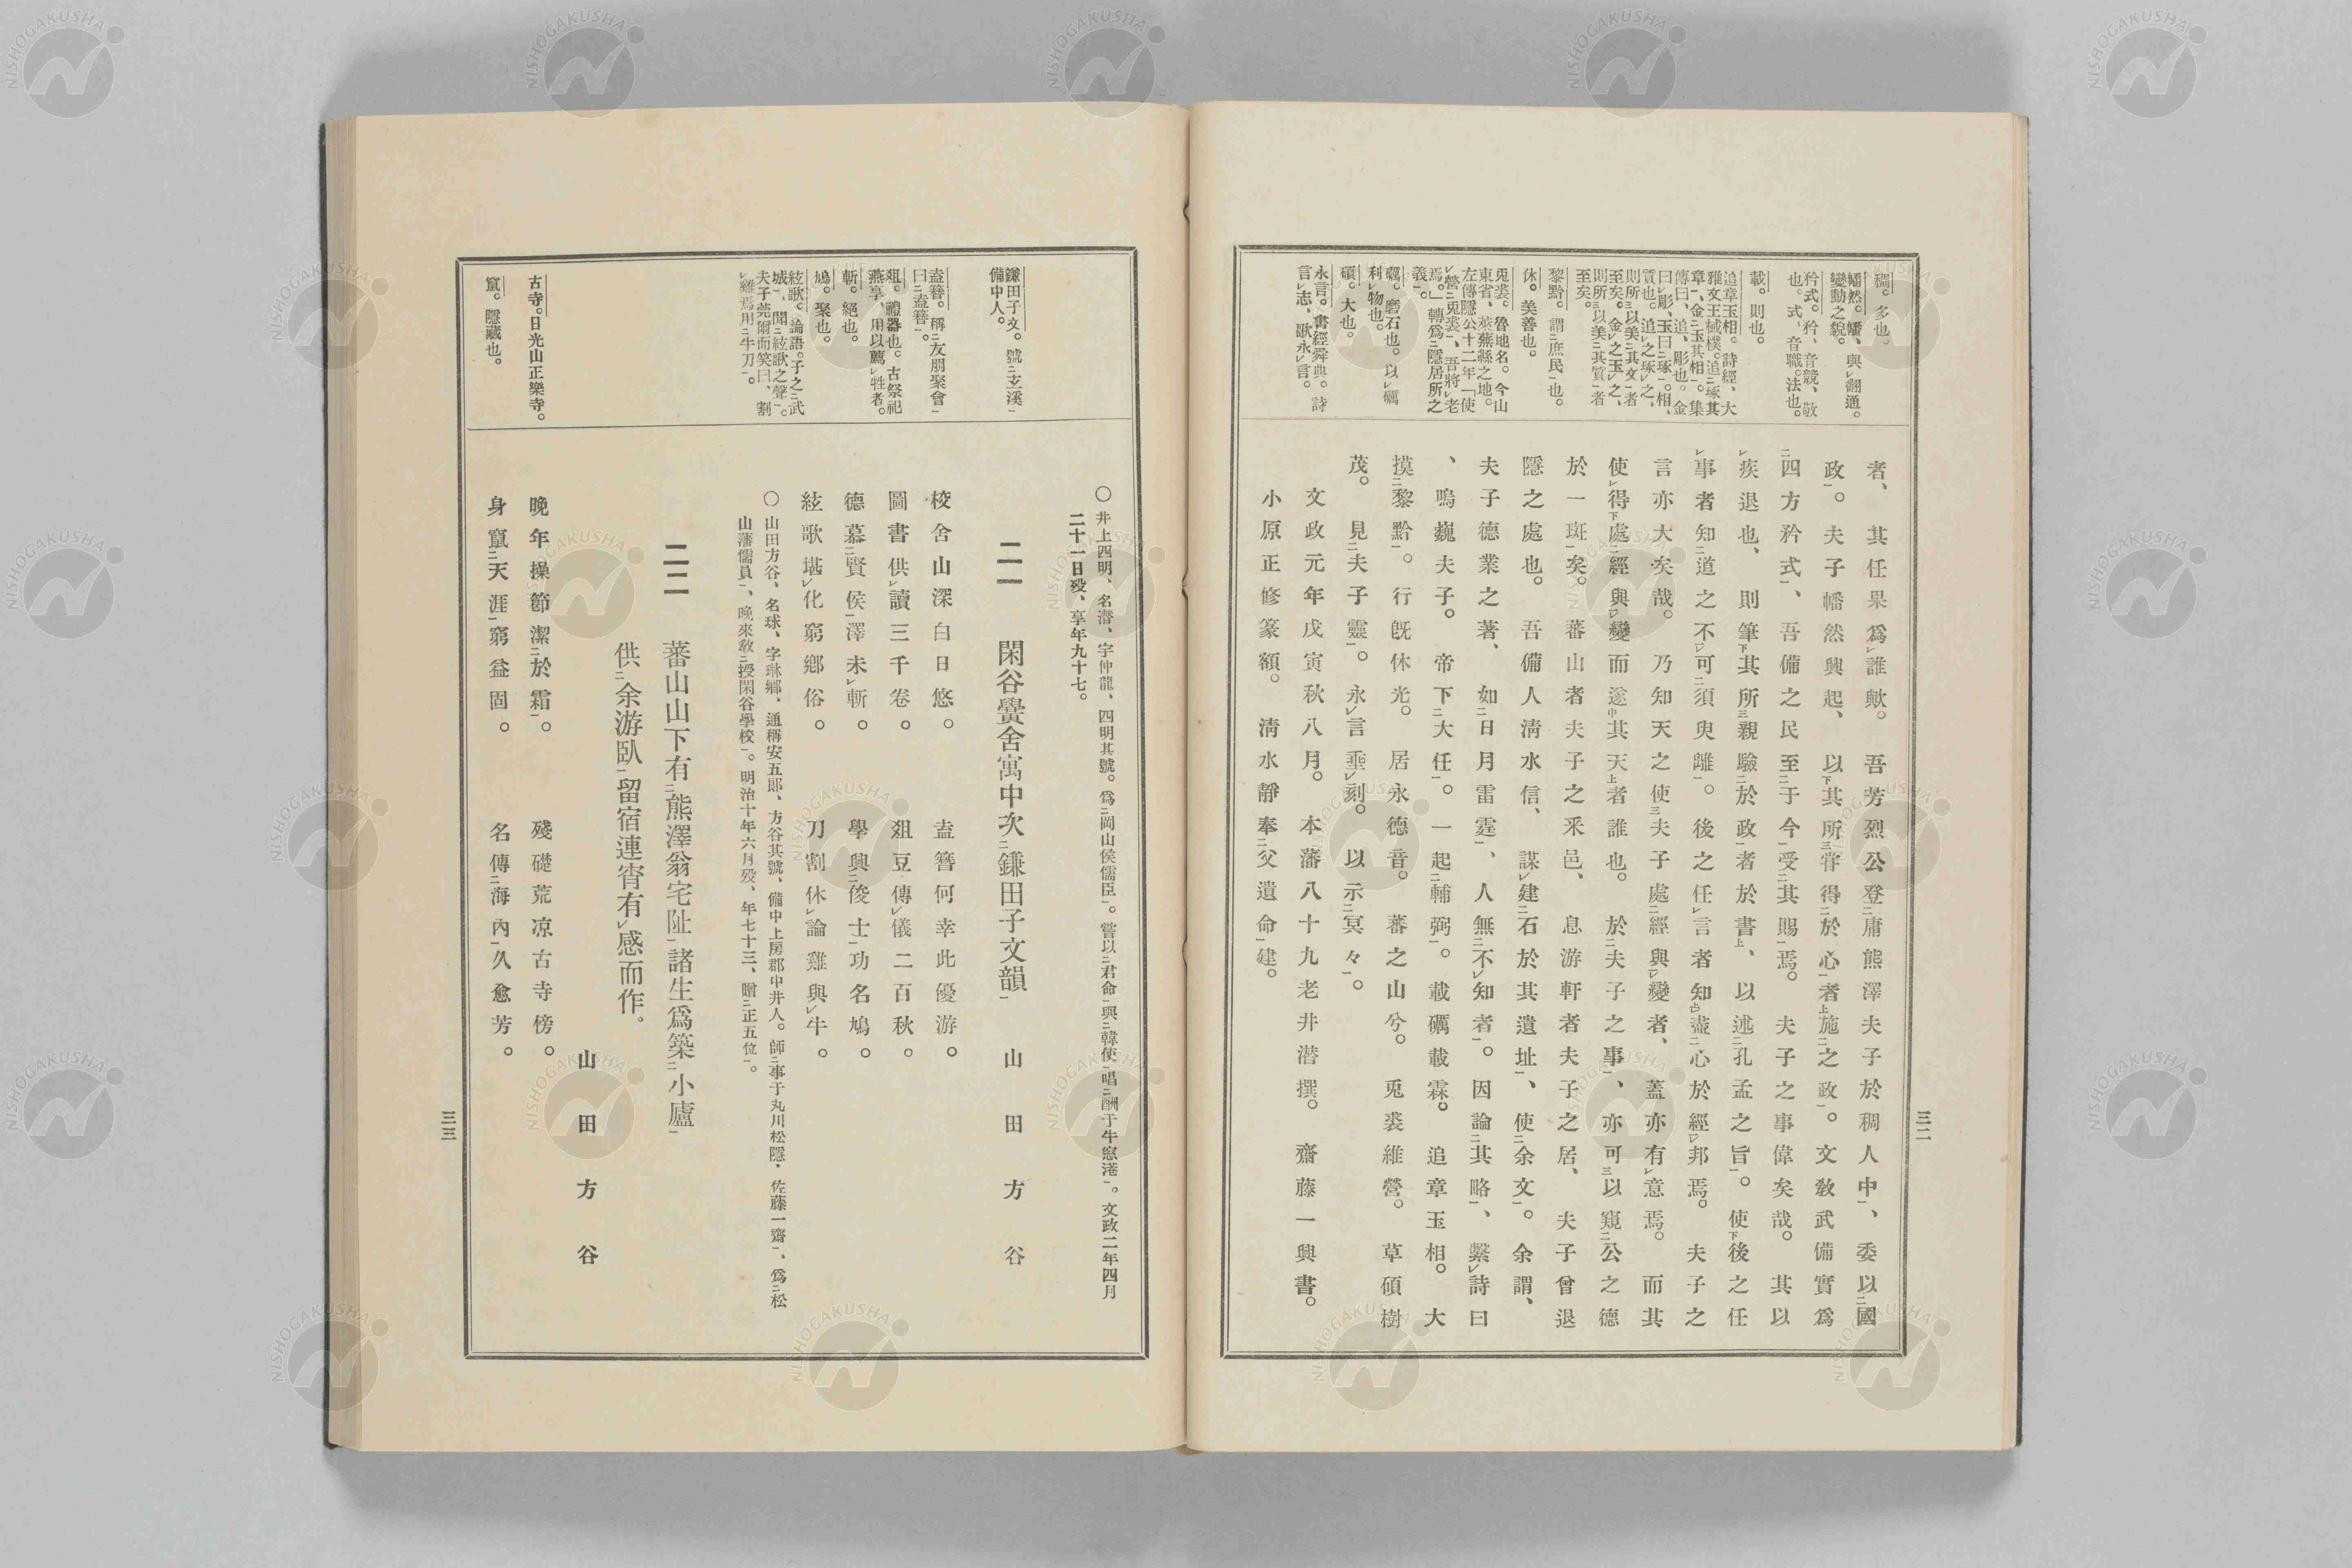 稠。多也。
幡然。幡、與翻通。
變動之貌。
矜式。矜、音競、敬
也。式、音職。法也。
載。則也。
追章玉相。詩經、大
雅文王棫樸。追琢其
章、金玉其相。集
傳曰、追、彫也。金
曰彫、玉曰琢。相、
質也。追之琢之、
則所以美其文者
至矣。金之玉之、
則所以美其質者
至矣。
黎黔。謂庶民也。
休。美善也。
兎裘。魯地名。今山
東省、萊蕪縣之地。
左傳隱公十二年「使
營兎裘、吾將老
焉。」轉爲隱居所之
義。
礪。磨石也。以礪
利物也。
碩。大也。
永言。書經舜典。詩
言志、歌永言。
者、其任果爲誰歟。吾芳烈公登庸熊澤夫子於稠人中、委以國
政。夫子幡然興起、以其所甞得於心者施之政。文敎武備實爲
四方矜式、吾備之民至于今受其賜焉。夫子之事偉矣哉。其以
疾退也、則筆其所親驗於政者於書、以述孔孟之旨。使後之任
事者知道之不可須臾離。後之任言者知盡心於經邦焉。夫子之
言亦大矣哉。乃知天之使夫子處經與變者、蓋亦有意焉。而其
使得處經與變而遂其天者誰也。於夫子之事、亦可以窺公之德
於一斑矣。蕃山者夫子之釆邑、息游軒者夫子之居、夫子曾退
隱之處也。吾備人淸水信、謀建石於其遺址、使余文。余謂、
夫子德業之著、如日月雷霆、人無不知者。因論其略、繫詩曰
、嗚巍夫子。帝下大任。一起輔弼。載礪載霖。追章玉相。大
摸黎黔。行旣休光。居永德音。蕃之山兮。兎裘維營。草碩樹
茂。見夫子靈。永言埀刻。以示冥々。
文政元年戊寅秋八月。本藩八十九老井潜撰。齋藤一興書。
小原正修篆額。淸水靜奉父遺命建。
三二
鎌田子文。號玄溪
備中人。
盍簪。稱友朋聚會
曰盍簪。
爼。禮器也。古祭祀
燕享、用以薦牲者。
斬。絕也。
鳩。聚也。
絃歌。論語。子之武
城、聞絃歌之聲。
夫子莞爾而笑曰、割
雞焉用牛刀。
古寺。日光山正樂寺。
竄。隱藏也。
〇井上四明、名潜、字仲龍、四明其號。爲岡山侯儒臣。嘗以君命與韓使唱酬于牛窓港。文政二年四月
二十一日歿、享年九十七。
二一 閑谷黌舍寓中次鎌田子文韻 山田方谷
校舍山深白日悠。盍簪何幸此優游。
圖書供讀三千卷。爼豆傳儀二百秋。
德慕賢侯澤未斬。學興俊士功名鳩。
絃歌堪化窮鄉俗。刀割休論雞與牛。
〇山田方谷、名球、字琳鄉、通稱安五郎、方谷其號、備中上房郡中井人。師事于丸川松隱・佐藤一齋、爲松
山藩儒員、晚來敎授閑谷學校。明治十年六月歿、年七十三、贈正五位。
二二 蕃山山下有熊澤翁宅阯諸生爲築小廬
供余游臥留宿連宵有感而作。
山田方谷
晚年操節潔於霜。殘礎荒凉古寺傍。
身竄天涯窮益固。名傳海內久愈芳。
三三